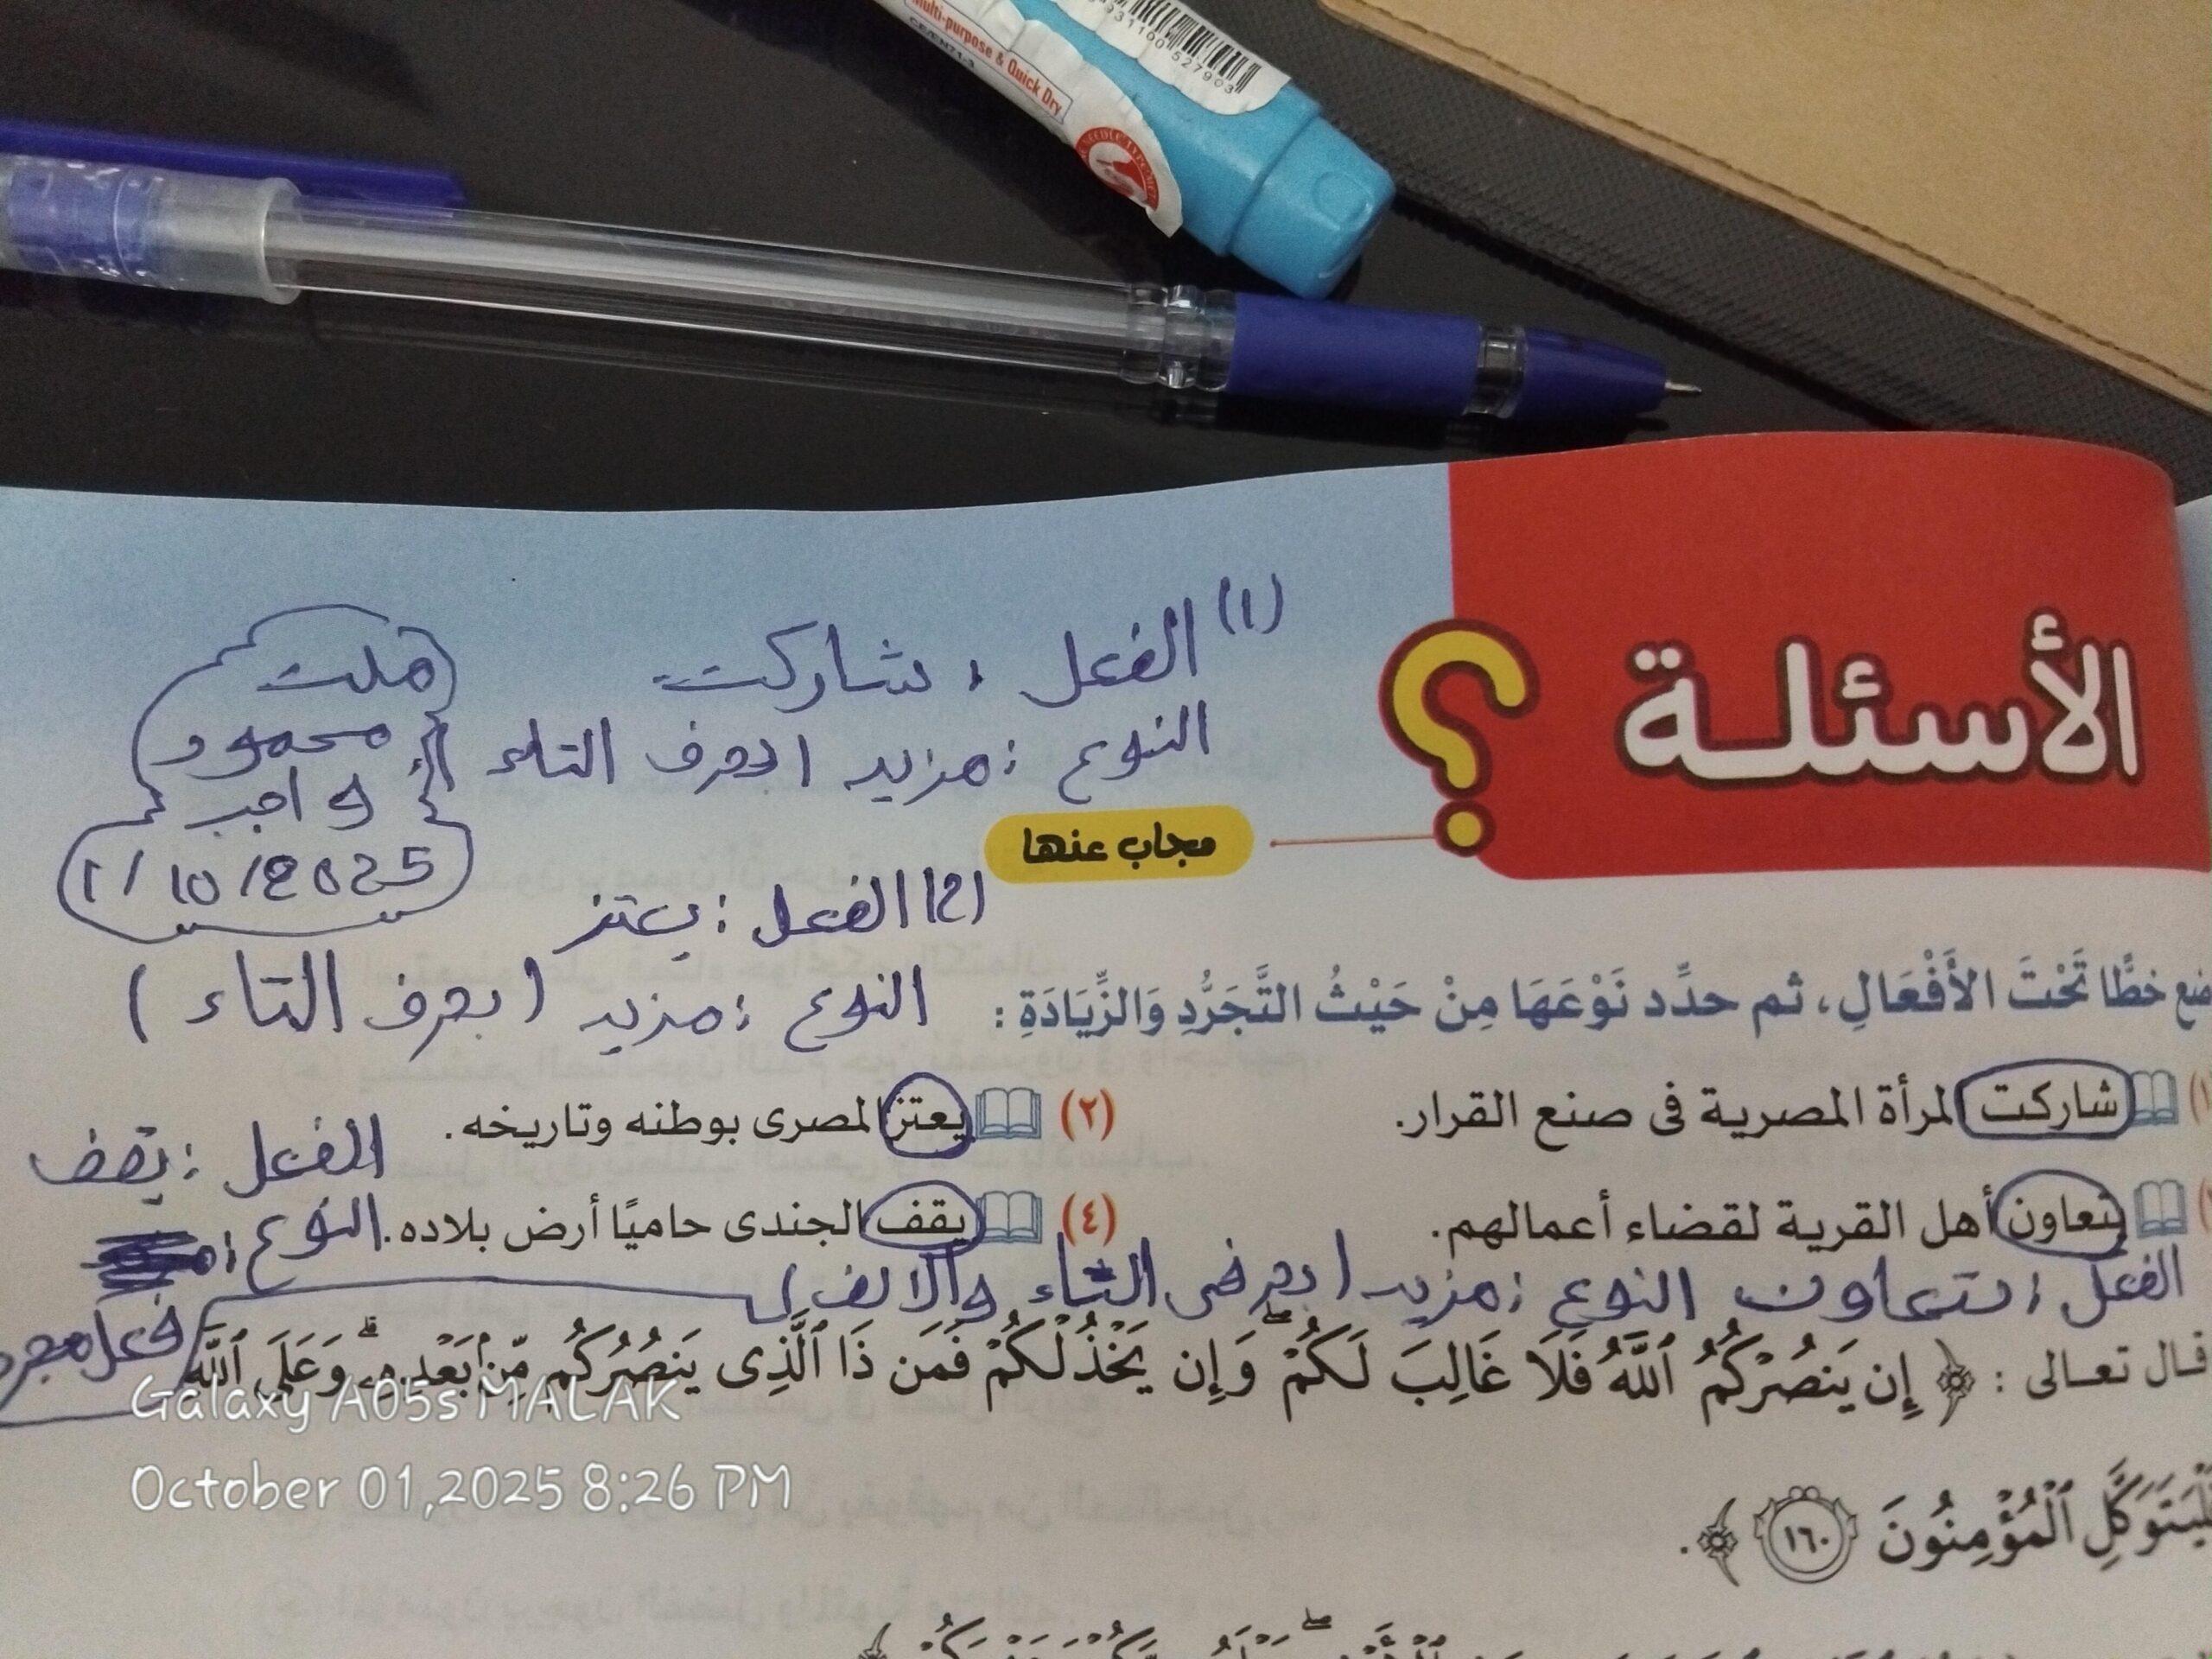 Multi-purpose & Quick Dry
الأسئلة
(1) الفعل : شاركت
النوع : مزيد (بحرف التاء)
ملك
محمود
واجب
1/10/2025
مجاب عنها
(2) الفعل : يعتز
النوع : مزيد (بحرف التاء)
ضع خطًّا تَحْتَ الأَفْعَالِ، ثم حدِّد نَوْعَهَا مِنْ حَيْثُ التَّجَرُّدِ وَالزِّيَادَةِ :
شاركت المرأة المصرية فى صنع القرار.
(٢) يعتز المصرى بوطنه وتاريخه.
الفعل : يقف
تعاون أهل القرية لقضاء أعمالهم.
(٤) يقف الجندى حاميًا أرض بلاده.
النوع :
فعل مجرد
الفعل : تعاون النوع : مزيد (بحرفى التاء والالف)
قال تعالى : ﴿ إِن يَنصُرْكُمُ ٱللَّهُ فَلَا غَالِبَ لَكُمْ ۖ وَإِن يَخْذُلْكُمْ فَمَن ذَا ٱلَّذِى يَنصُرُكُم مِّنۢ بَعْدِهِۦ ۗ وَعَلَى ٱللَّهِ
فَلْيَتَوَكَّلِ ٱلْمُؤْمِنُونَ ١٦٠ ﴾.
Galaxy A05s MALAK
October 01,2025 8:26 PM